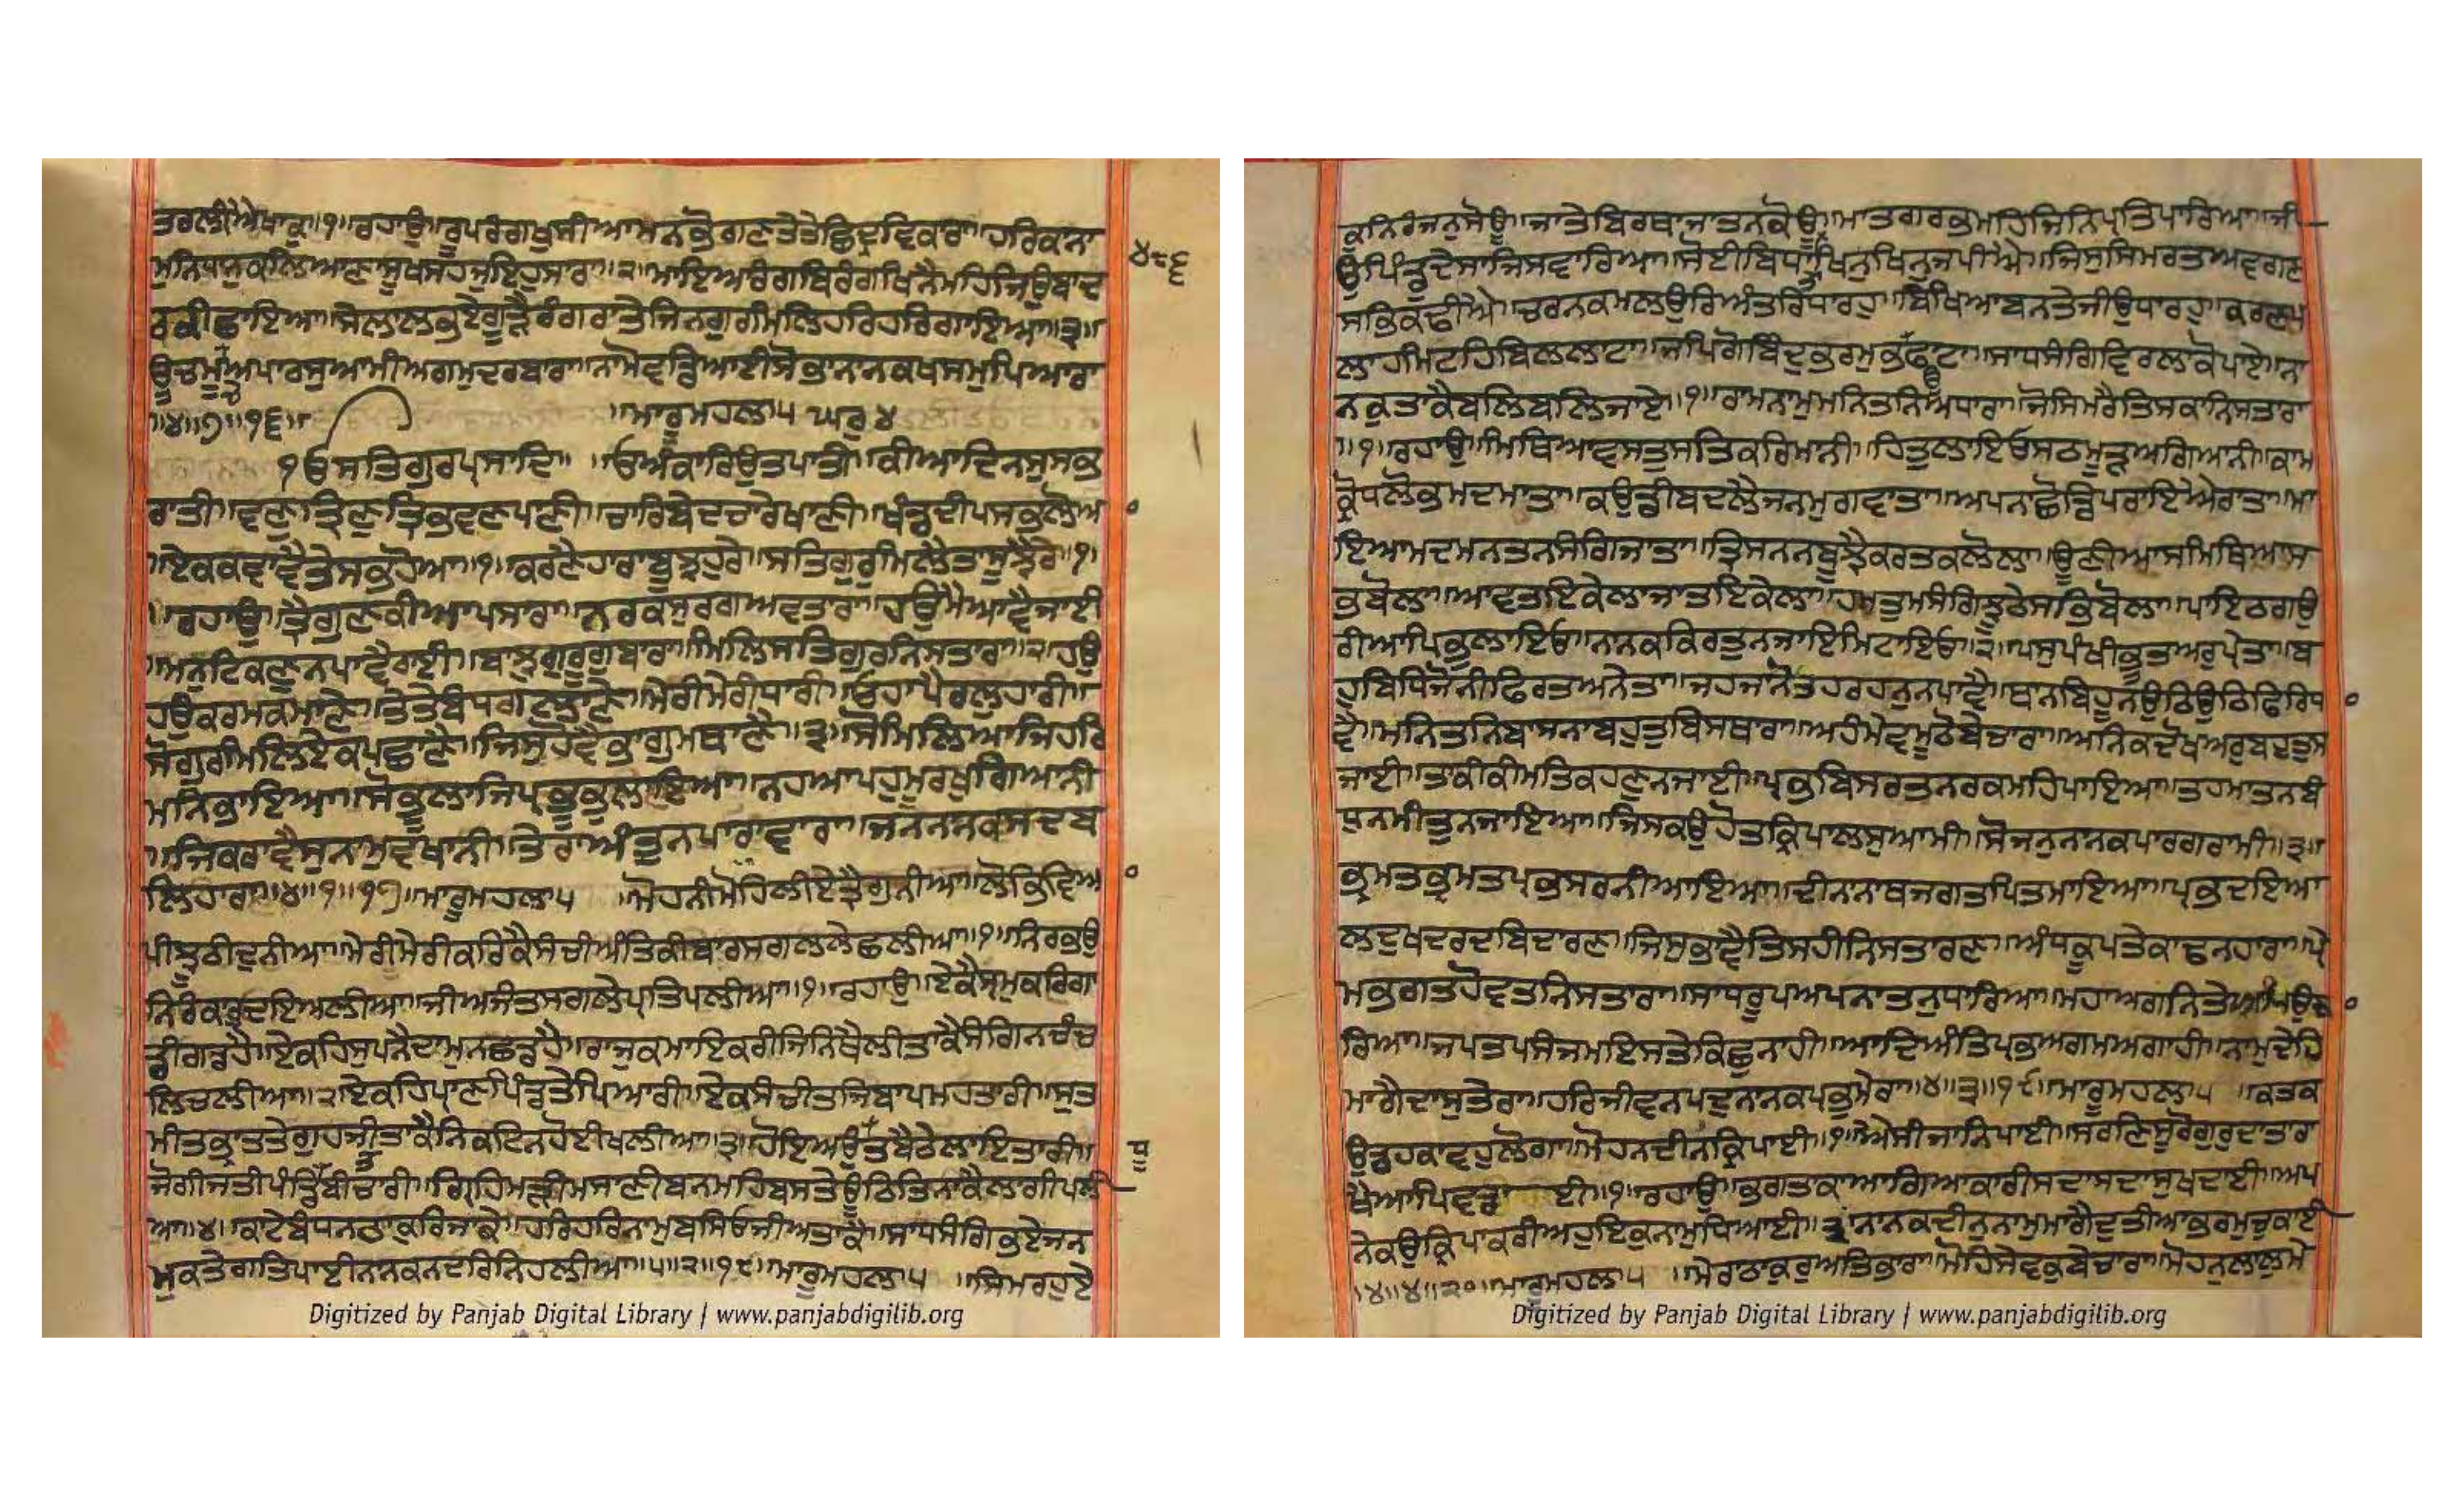 ਤਰਲੀਐਥਾਕੁ॥੧॥ਰਹਾਉ॥ਰੂਪਰੰਗਖੁਸੀਆਮਨਭੋਗਣਤੇਤੇਛਿਦ੍ਰਵਿਕਾਰਾ॥ਹਰਿਕਾਨਾ
ਮੁਨਿਧਾਨੁਕਲਿਆਣਾਸੂਖਸਹਜੁਇਹੁਸਾਰਾ॥੨॥ਮਾਇਆਰੰਗਬਿਰੰਗਖਿਨੈਮਹਿਜਿਉਬਾਦ
ਰਕੀਛਾਇਆ॥ਸੇਲਾਲਭਏਗੂੜੈਰੰਗਰਾਤੇਜਿਨਗੁਰਮਿਲਿਹਰਿਹਰਿਗਾਇਆ॥੩॥
ਊਚਮੂਚਅਪਾਰਸੁਆਮੀਅਗਮੁਦਰਬਾਰਾ॥ਨਾਮੋਵਡਿਆਈਸੋਭਾਨਾਨਕਖਸਮੁਪਿਆਰਾ
॥੪॥੭॥੧੬॥ ਮਾਰੂਮਹਲਾ੫ ਘਰੁ੪
੧ਓਸਤਿਗੁਰਪ੍ਰਸਾਦਿ॥ ॥ਓਅੰਕਾਰਿਉਤਪਾਤੀ॥ਕੀਆਦਿਨਸੁਸਭ
ਰਾਤੀ॥ਵਣੁਤ੍ਰਿਣੁਤ੍ਰਿਭਵਣਪਾਣੀ॥ਚਾਰਿਬੇਦਚਾਰੇਖਾਣੀ॥ਖੰਡਦੀਪਸਭਿਲੋਆ
॥ਏਕਕਵਾਵੈਤੇਸਭਹੋਆ॥੧॥ਕਰਣੈਹਾਰਾਬੂਝਹੁਰੇ॥ਸਤਿਗੁਰੁਮਿਲੈਤਾਸੂਝੈਰੇ॥੧॥
॥ਰਹਾਉ॥ਤ੍ਰੈਗੁਣਕੀਆਪਸਾਰਾ॥ਨਰਕਸੁਰਗਅਵਤਾਰਾ॥ਹਉਮੈਆਵੈਜਾਈ
॥ਮਨੁਟਿਕਣੁਨਪਾਵੈਰਾਈ॥ਬਾਝੁਗੁਰੂਗੁਬਾਰਾ॥ਮਿਲਿਸਤਿਗੁਰਨਿਸਤਾਰਾ॥੨॥ਹਉ
ਹਉਕਰਮਕਮਾਣੇ॥ਤੇਤੇਬੰਧਗਲਾਣੇ॥ਮੇਰੀਮੇਰੀਧਾਰੀ॥ਓਹਾਪੈਰਲੁਹਾਰੀ॥
ਸੋਗੁਰਮਿਲਿਏਕਪਛਾਣੈ॥ਜਿਸੁਹੋਵੈਭਾਗੁਮਥਾਣੈ॥੩॥ਸੋਮਿਲਿਆਜਿਹਰਿ
ਮਨਿਭਾਇਆ॥ਸੋਭੂਲਾਜਿਪ੍ਰਭੂਭੁਲਾਇਆ॥ਨਹਆਪਹੁਮੂਰਖੁਗਿਆਨੀ
॥ਜਿਕਰਾਵੈਸੁਨਾਮੁਵਖਾਨੀ॥ਤੇਰਾਅੰਤੁਨਪਾਰਾਵਾਰਾ॥ਜਨਨਾਨਕਸਦਬ
ਲਿਹਾਰਾ॥੪॥੧॥੧੭॥ਮਾਰੂਮਹਲਾ੫ ॥ਮੋਹਨੀਮੋਹਿਲੀਏਤ੍ਰੈਗੁਨੀਆ॥ਲੋਭਿਵਿਆ
ਪੀਝੂਠੀਦੁਨੀਆ॥ਮੇਰੀਮੇਰੀਕਰਿਕੈਸੰਚੀਅੰਤਿਕੀਬਾਰਸਗਲਲੇਛਲੀਆ॥੧॥ਨਿਰਭਉ
ਨਿਰੰਕਾਰੁਦਇਅਲੀਆ॥ਜੀਅਜੰਤਸਗਲੇਪ੍ਰਤਿਪਲੀਆ॥੧॥ਰਹਾਉ॥ਏਕੈਸ੍ਰਮੁਕਰਿਗਾ
ਡੀਗਡਹੈ॥ਏਕਹਿਸੁਪਨੈਦਾਮੁਨਛਡਹੈ॥ਰਾਜੁਕਮਾਇਕਰੀਜਿਨਿਥੈਲੀਤਾਕੈਸੰਗਿਨਚੰਚ
ਲਿਚਲੀਆ॥੨॥ਏਕਹਿਪ੍ਰਾਣਪਿੰਡਤੇਪਿਆਰੀ॥ਏਕਸੰਚੀਤਜਿਬਾਪਮਹਤਾਰੀ॥ਸੁਤ
ਮੀਤਭ੍ਰਾਤਤੇਗੁਹਜੀਤਾਕੈਨਿਕਟਿਨਹੋਈਖਲੀਆ॥੩॥ਹੋਇਅਉਧੂਤਬੈਠੇਲਾਇਤਾਰੀ॥
ਜੋਗੀਜਤੀਪੰਡਿਤਬੀਚਾਰੀ॥ਗ੍ਰਿਹਿਮੜੀਮਸਾਣੀਬਨਮਹਿਬਸਤੇਊਠਿਤਿਨਾਕੈਲਾਗੀਪਲੀ
ਆ॥੪॥ਕਾਟੇਬੰਧਨਠਾਕੁਰਿਜਾਕੇ॥ਹਰਿਹਰਿਨਾਮੁਬਸਿਓਜੀਅਤਾਕੈ॥ਸਾਧਸੰਗਿਭਏਜਨ
ਮੁਕਤੇਗਤਿਪਾਈਨਾਨਕਨਦਰਿਨਿਹਲੀਆ॥੫॥੨॥੧੮॥ਮਾਰੂਮਹਲਾ੫ ॥ਸਿਮਰਹੁਏ
Digitized by Panjab Digital Library | www.panjabdigilib.org
੪੮੬
ਧੂ
ਕਨਿਰੰਜਨੁਸੋਊ॥ਜਾਤੇਬਿਰਥਾਜਾਤਨਕੋਊ॥ਮਾਤਗਰਭਮਹਿਜਿਨਿਪ੍ਰਤਿਪਾਰਿਆ॥ਜੀ
ਉਪਿੰਡੁਦੇਸਾਜਿਸਵਾਰਿਆ॥ਸੋਈਬਿਧਾਤਾਖਿਨੁਖਿਨੁਜਪੀਐ॥ਜਿਸੁਸਿਮਰਤਅਵਗੁਣ
ਸਭਿਢਕੀਐ॥ਚਰਨਕਮਲਉਰਿਅੰਤਰਿਧਾਰਹੁ॥ਬਿਖਿਆਬਨਤੇਜੀਉਧਾਰਹੁ॥ਕਰਣਪ
ਲਾਹਮਿਟਹਿਬਿਲਲਾਟਾ॥ਜਪਿਗੋਬਿੰਦੁਭਰਮੁਭਉਫਾਟਾ॥ਸਾਧਸੰਗਿਵਿਰਲਾਕੋਪਾਏ॥ਨਾ
ਨਕੁਤਾਕੈਬਲਿਬਲਿਜਾਏ॥੧॥ਰਾਮਨਾਮੁਮਨਿਤਨਿਆਧਾਰਾ॥ਜੋਸਿਮਰੈਤਿਸਕਾਨਿਸਤਾਰਾ
॥੧॥ਰਹਾਉ॥ਮਿਥਿਆਵਸਤੁਸਤਿਕਰਿਮਾਨੀ॥ਹਿਤੁਲਾਇਓਸਠਮੂੜਅਗਿਆਨੀ॥ਕਾਮ
ਕ੍ਰੋਧਲੋਭਮਦਮਾਤਾ॥ਕਉਡੀਬਦਲੈਜਨਮੁਗਵਾਤਾ॥ਅਪਨਾਛੋਡਿਪਰਾਇਐਰਾਤਾ॥ਮਾ
ਇਆਮਦਮਨਤਨਸੰਗਿਜਾਤਾ॥ਤ੍ਰਿਸਨਨਬੂਝੈਕਰਤਕਲੋਲਾ॥ਊਣੀਆਸਮਿਥਿਆਸ
ਭਬੋਲਾ॥ਆਵਤਇਕੇਲਾਜਾਤਇਕੇਲਾ॥ਹਮਤੁਮਸੰਗਿਝੂਠੇਸਭਿਬੋਲਾ॥ਪਾਇਠਗਉ
ਰੀਆਪਿਭੁਲਾਇਓ॥ਨਾਨਕਕਿਰਤੁਨਜਾਇਮਿਟਾਇਓ॥੨॥ਪਸੁਪੰਖੀਭੂਤਅਰੁਪ੍ਰੇਤਾ॥ਬ
ਹੁਬਿਧਿਜੋਨੀਫਿਰਤਅਨੇਤਾ॥ਜਹਜਾਨੋਤਹਰਹਨੁਨਪਾਵੈ॥ਥਾਨਬਿਹੂਨਉਠਿਉਠਿਫਿਰਿਧਾ
ਵੈ॥ਮਨਿਤਨਿਬਾਸਨਾਬਹੁਤੁਬਿਸਥਾਰਾ॥ਅਹੰਮੇਵਮੂਠੋਬੇਚਾਰਾ॥ਅਨਿਕਦੋਖਅਰੁਬਹੁਤੁਸ
ਜਾਈ॥ਤਾਕੀਕੀਮਤਿਕਹਣੁਨਜਾਈ॥ਪ੍ਰਭਬਿਸਰਤਨਰਕਮਹਿਪਾਇਆ॥ਤਹਮਾਤਨਬੰ
ਧੁਨਮੀਤੁਨਜਾਇਆ॥ਜਿਸਕਉਹੋਤਕ੍ਰਿਪਾਲਸੁਆਮੀ॥ਸੋਜਨੁਨਾਨਕਪਾਰਗਰਾਮੀ॥੩॥
ਭ੍ਰਮਤਭ੍ਰਮਤਪ੍ਰਭਸਰਨੀਆਇਆ॥ਦੀਨਾਨਾਥਜਗਤਪਿਤਮਾਇਆ॥ਪ੍ਰਭਦਇਆ
ਲਦੁਖਦਰਦਬਿਦਾਰਣ॥ਜਿਸੁਭਾਵੈਤਿਸਹੀਨਿਸਤਾਰਣ॥ਅੰਧਕੂਪਤੇਕਾਢਨਹਾਰਾ॥ਪ੍ਰੇ
ਮਭਗਤਹੋਵਤਨਿਸਤਾਰਾ॥ਸਾਧਰੂਪਅਪਨਾਤਨੁਧਾਰਿਆ॥ਮਹਾਅਗਨਿਤੇਆਪਿਉਬਾ
ਰਿਆ॥ਜਪਤਪਸੰਜਮਇਸਤੇਕਿਛੁਨਾਹੀ॥ਆਦਿਅੰਤਿਪ੍ਰਭਅਗਮਅਗਾਹੀ॥ਨਾਮੁਦੇਹਿ
ਮਾਗੈਦਾਸੁਤੇਰਾ॥ਹਰਿਜੀਵਨਪਦੁਨਾਨਕਪ੍ਰਭੁਮੇਰਾ॥੪॥੩॥੧੯॥ਮਾਰੂਮਹਲਾ੫ ॥ਕਤਕ
ਉਡਹਕਾਵਹੁਲੋਗਾ॥ਮੋਹਨਦੀਨਕ੍ਰਿਪਾਈ॥੧॥ਐਸੀਜਾਨਿਪਾਈ॥ਸਰਣਿਸੂਰੋਗੁਰੁਦਾਤਾਰਾ
ਖੈਆਪਿਵਡਾ ਈ॥੧॥ਰਹਾਉ॥ਭਗਤਕਾਆਗਿਆਕਾਰੀਸਦਾਸਦਾਸੁਖਦਾਈ॥ਅਪ
ਨੇਕਉਕ੍ਰਿਪਾਕਰੀਅਹੁਇਕੁਨਾਮੁਧਿਆਈ॥੩॥ਨਾਨਕਦੀਨੁਨਾਮੁਮਾਗੈਦੁਤੀਆਭਰਮੁਚੁਕਾਈ
॥੪॥੪॥੨੦॥ਮਾਰੂਮਹਲਾ੫ ॥ਮੇਰਾਠਾਕੁਰੁਅਤਿਭਾਰਾ॥ਮੋਹਿਸੇਵਕੁਬੇਚਾਰਾ॥ਮੋਹਨੁਲਾਲੁਮੇ
Digitized by Panjab Digital Library | www.panjabdigilib.org